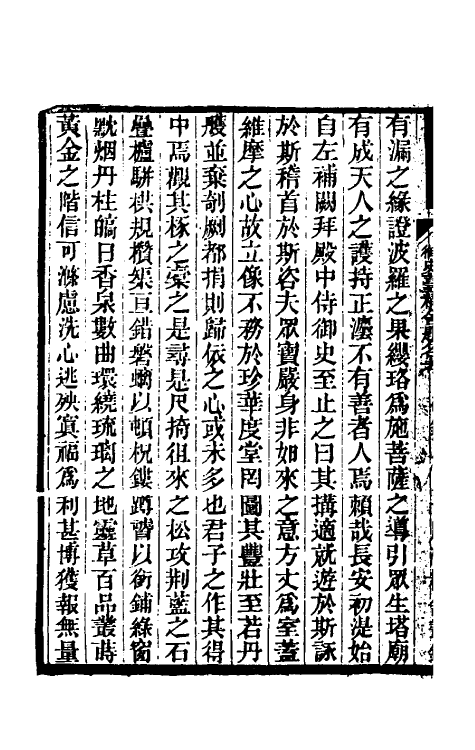 有漏之緣證波羅之果纓珞爲施菩薩之導引眾生塔廟
有成天人之護持正灋不有善者人焉賴哉長安初湜始
自左補闕拜殿中侍御史至止之日其搆適就遊於斯詠
於斯稽首於斯咨夫眾寶嚴身非如來之意方丈爲室蓋
維摩之心故立像不務於珍華度堂罔圖其豐壯至若丹
雘並棄剞劂都捐則歸依之心或未多也君子之作其得
中焉觀其椓之橐之是尋是尺掎徂來之松攻荆藍之石
疊櫨駢栱規欑㮮亘錯磐螭以頓柷鏤蹲㬱以衝鋪綠窗
黕烟丹柱皜日香泉數曲環繞琉璃之地靈草百品叢蒔
黃金之階信可滌慮洗心逃殃寘福爲利甚博獲報無量